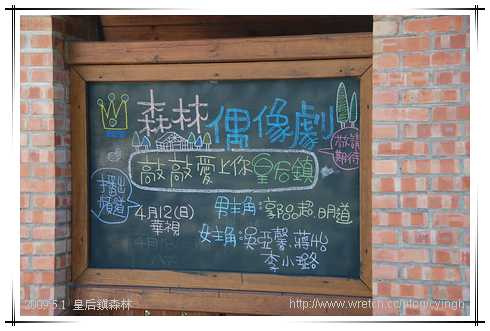 森林偶像劇
敬請
期待
敲敲愛上你皇后鎮
播出
頻道
4月12(日)
華視
男主角:郭品超.明道
女主角:吳亞馨.蔣怡
李小璐
2009.5.1 皇后鎮森林
http://www.wretch.cc/blog/cyingh